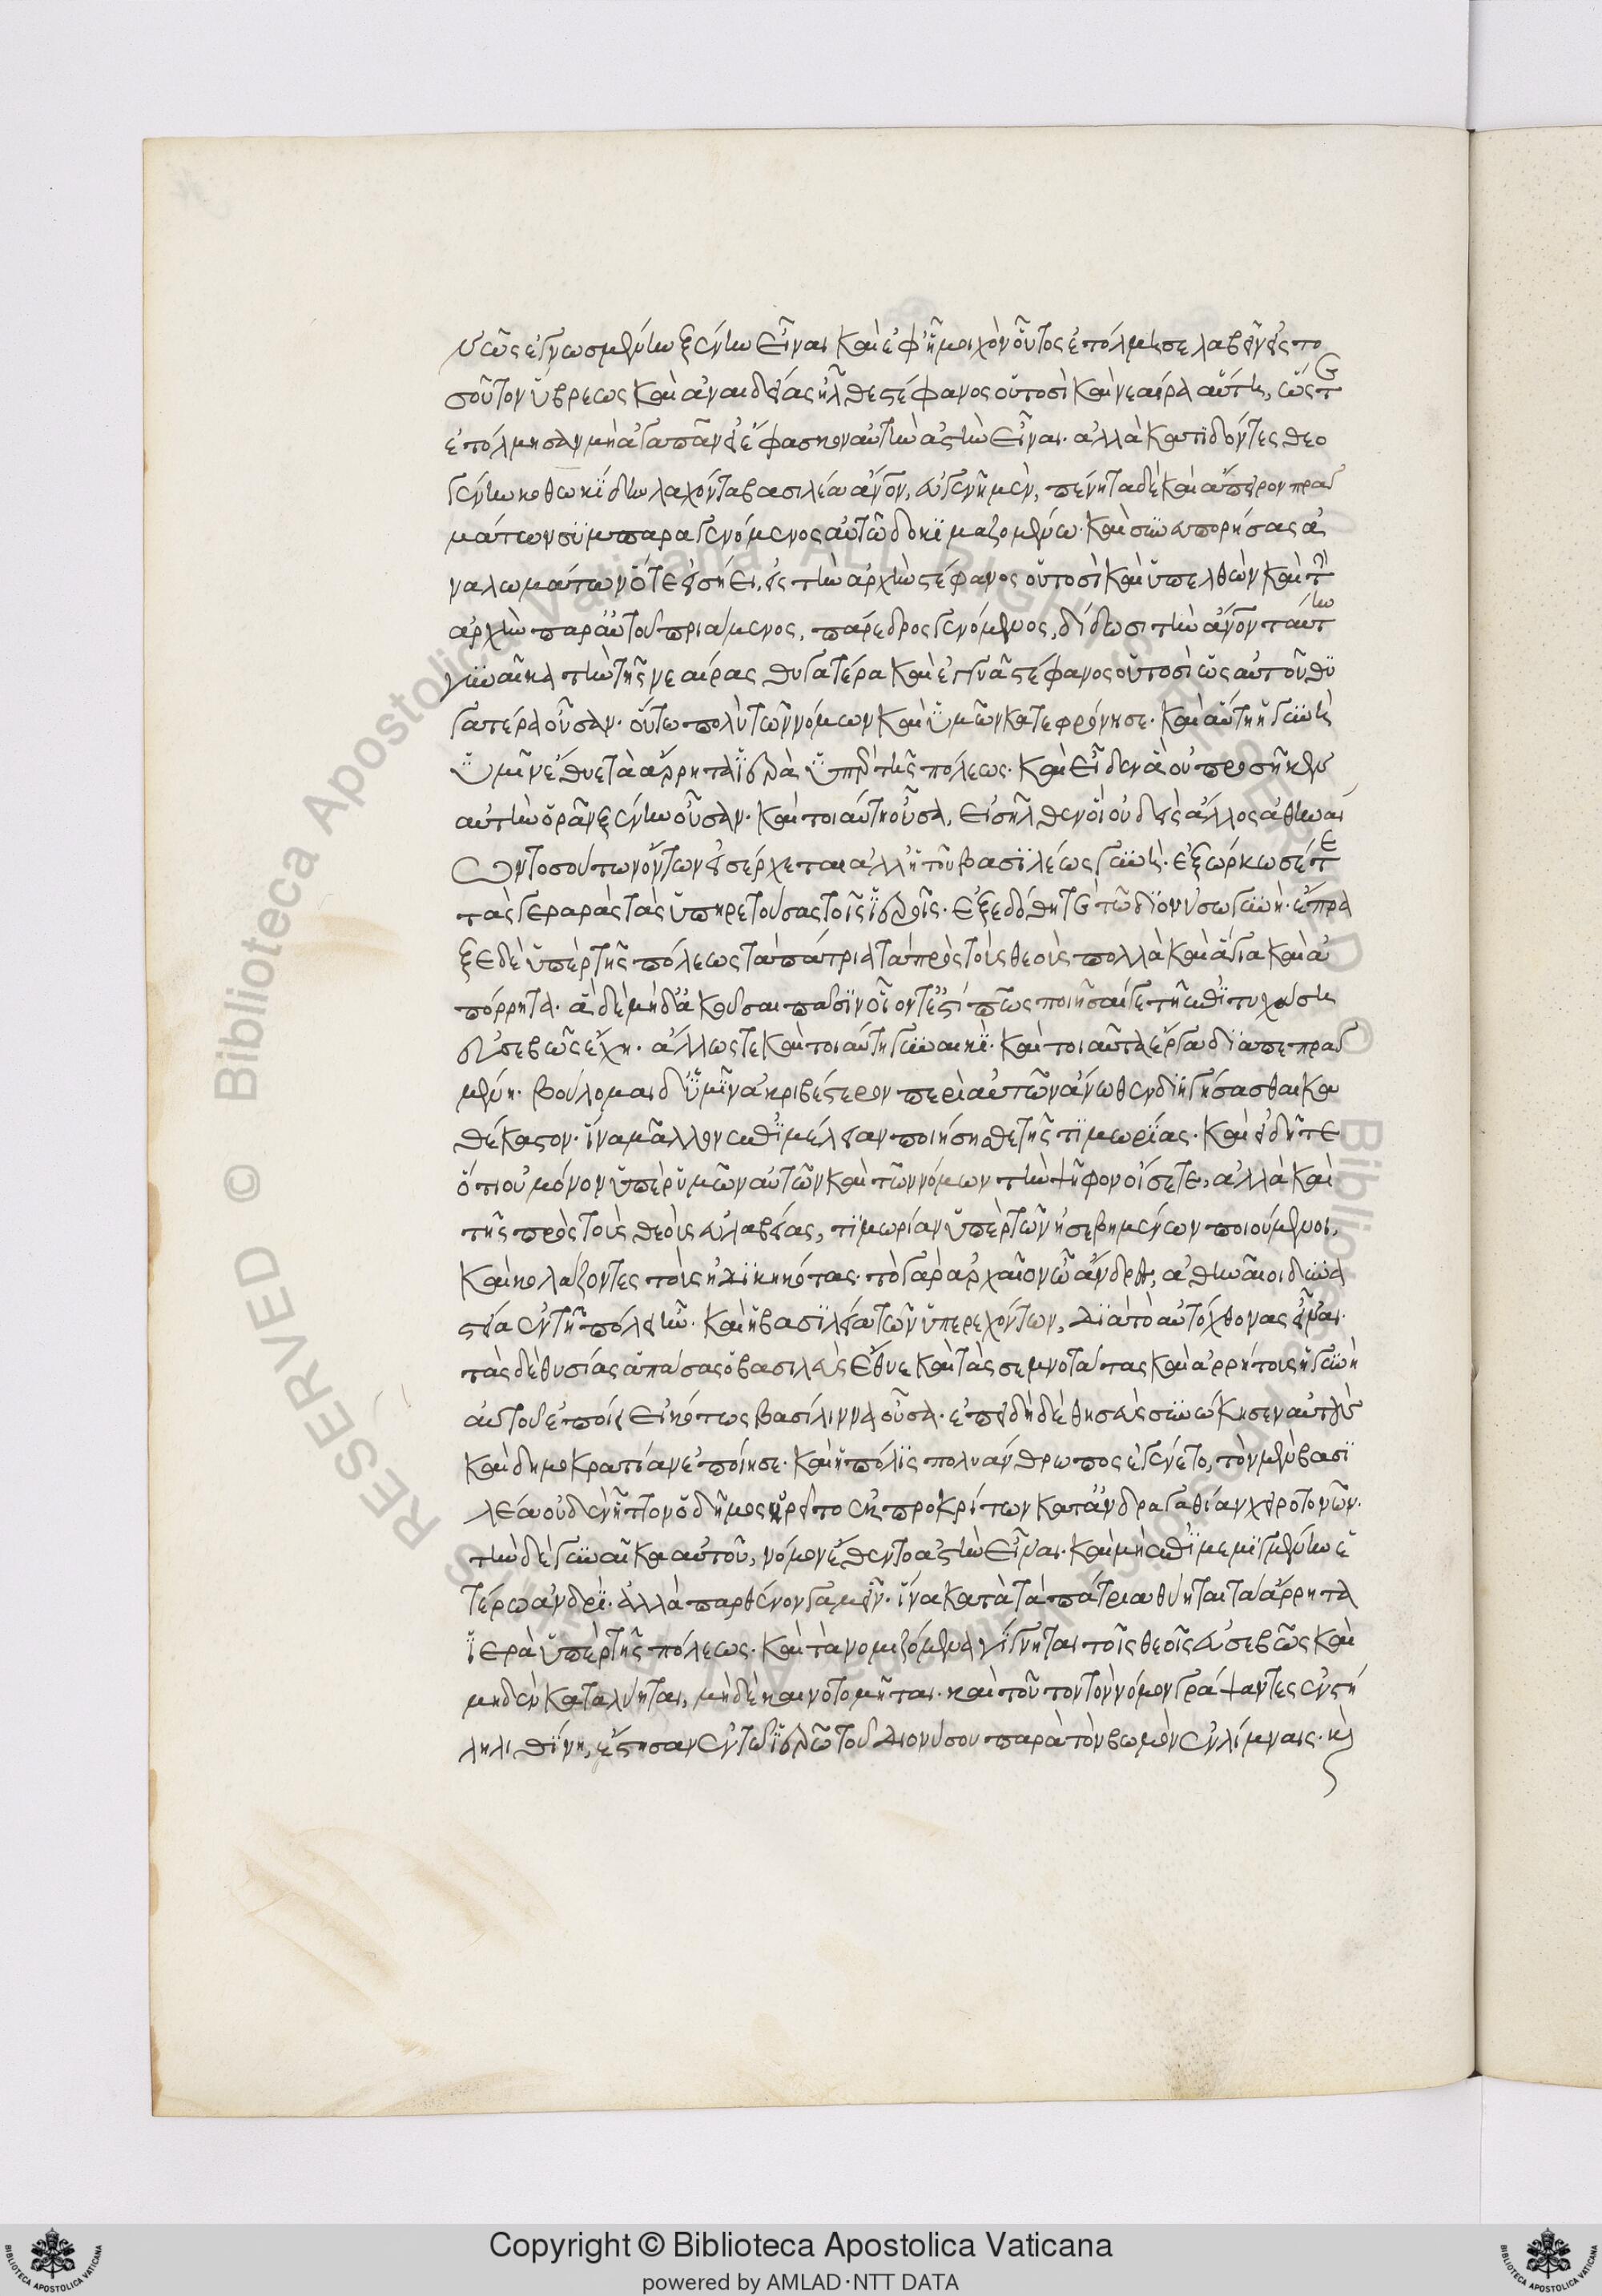 νῶς ἐγνωσμένην ξένην εἶναι καὶ ἐφ' ᾗ μοιχὸν οὗτος ἐτόλμησε λαβεῖν εἰς το
σοῦτον ὕβρεως καὶ ἀναιδείας ἦλθε στέφανος οὑτοσὶ καὶ νεαίρα αὕτη, ὥστε
ἐτόλμησαν μὴ ἀγαπᾶν εἰ ἔφασκον αὐτὴν ἀστὴν εἶναι. ἀλλὰ κατιδόντες θεο
γένην κοθωκίδην λαχόντα βασιλέα ἄνον, εὐγενῆ μὲν, πένητα δὲ καὶ ἄπειρον πραγ
μάτων συμπαραγενόμενος αὐτῷ δοκιμαζομένω. καὶ συνευπορήσας ἀ
ναλωμάτων ὅτε εἰσήει, εἰς τὴν ἀρχὴν στέφανος οὑτοσὶ καὶ ὑπελθὼν καὶ τὴν
ἀρχὴν παρ' αὐτοῦ πριάμενος, πάρεδρος γενόμενος, δίδωσι τὴν ἄνον ταύτην
γυναῖκα τὴν τῆς νεαίρας θυγατέρα καὶ ἐγγυᾶ στέφανος οὑτοσὶ ὡς αὑτοῦ θυ
γατέρα οὖσαν. οὕτω πολὺ τῶν νόμων καὶ ὑμῶν κατεφρόνησε. καὶ αὕτη ἡ γυνὴ
ὑμῖν ἔθυε τὰ ἄρρητα ἱερὰ ὑπὲρ τῆς πόλεως. καὶ εἶδεν ἃ οὐ προσῆκεν
αὐτὴν ὁρᾶν ξένην οὖσαν. καὶ τοιαύτη οὖσα, εἰσῆλθεν οἷ οὐδεὶς ἄλλος ἀθηναί
ων τοσούτων ὄντων εἰσέρχεται ἀλλ' ἢ τοῦ βασιλέως γυνὴ. ἐξώρκωσέ τε
τὰς γεραρὰς τὰς ὑπηρετούσας τοῖς ἱεροῖς. ἐξεδόθη τε τῷ διονύσω γυνὴ. ἔπρα
ξε δὲ ὑπὲρ τῆς πόλεως τὰ πάτρια τὰ πρὸς τοὺς θεοὺς πολλὰ καὶ ἅγια καὶ ἀ
πόρρητα. ἃ δὲ μηδ' ἀκοῦσαι πᾶσιν οἷόν τ' ἐστὶ πῶς ποιῆσαί γε τῇ ἐπιτυχούση
εὐσεβῶς ἔχη. ἄλλως τε καὶ τοιαύτη γυναικὶ. καὶ τοιαῦτα ἔργα διαπεπραγ
μένη. βούλομαι δ' ὑμῖν ἀκριβέστερον περὶ αὐτῶν ἄνωθεν διηγήσασθαι κα
θ' ἕκαστον. ἵνα μᾶλλον ἐπιμέλειαν ποιήσησθε τῆς τιμωρίας. καὶ εἰδῆτε
ὅτι οὐ μόνον ὑπὲρ ὑμῶν αὐτῶν καὶ τῶν νόμων τὴν ψῆφον οἴσετε, ἀλλὰ καὶ
τῆς πρὸς τοὺς θεοὺς εὐλαβείας, τιμωρίαν ὑπὲρ τῶν ἠσεβημένων ποιούμενοι,
καὶ κολάζοντες τοὺς ἠδικηκότας. τὸ γὰρ ἀρχαῖον ὦ ἄνδρες, ἀθηναῖοι δυνα
στεία ἐν τῇ πόλει ἦν. καὶ ἡ βασιλεία τῶν ὑπερεχόντων, διὰ τὸ αὐτόχθονας εἶναι.
τὰς δὲ θυσίας ἁπάσας ὁ βασιλεὺς ἔθυε καὶ τὰς σεμνοτάτας καὶ ἀρρήτους ἡ γυνὴ
αὐτοῦ ἐποίει εἰκότως βασίλιννα οὖσα. ἐπειδὴ δὲ θησεὺς συνώκησεν αὐτοὺς
καὶ δημοκρατίαν ἐποίησε. καὶ ἡ πόλις πολυάνθρωπος ἐγένετο, τὸν μὲν βασι
λέα οὐδὲν ἧττον ὁ δῆμος ᾑρεῖτο ἐκ προκρίτων κατ' ἀνδραγαθίαν χειροτονῶν.
τὴν δὲ γυναῖκα αὐτοῦ, νόμον ἔθεντο ἀστὴν εἶναι. καὶ μὴ ἐπιμεμιγμένην ἑ
τέρω ἀνδρὶ. ἀλλὰ παρθένον γαμεῖν. ἵνα κατὰ τὰ πάτρια θύηται τὰ ἄρρητα
ἱερὰ ὑπὲρ τῆς πόλεως. καὶ τὰ νομιζόμενα γίγνηται τοῖς θεοῖς εὐσεβῶς καὶ
μηδὲν καταλύηται, μὴδὲ καινοτομῆται. καὶ τοῦτον τὸν νόμον γράψαντες ἐν στή
λη λιθίνη, ἔστησαν ἐν τῷ ἱερῷ τοῦ διονύσου παρὰ τὸν βωμὸν ἐν λίμναις. κὶ